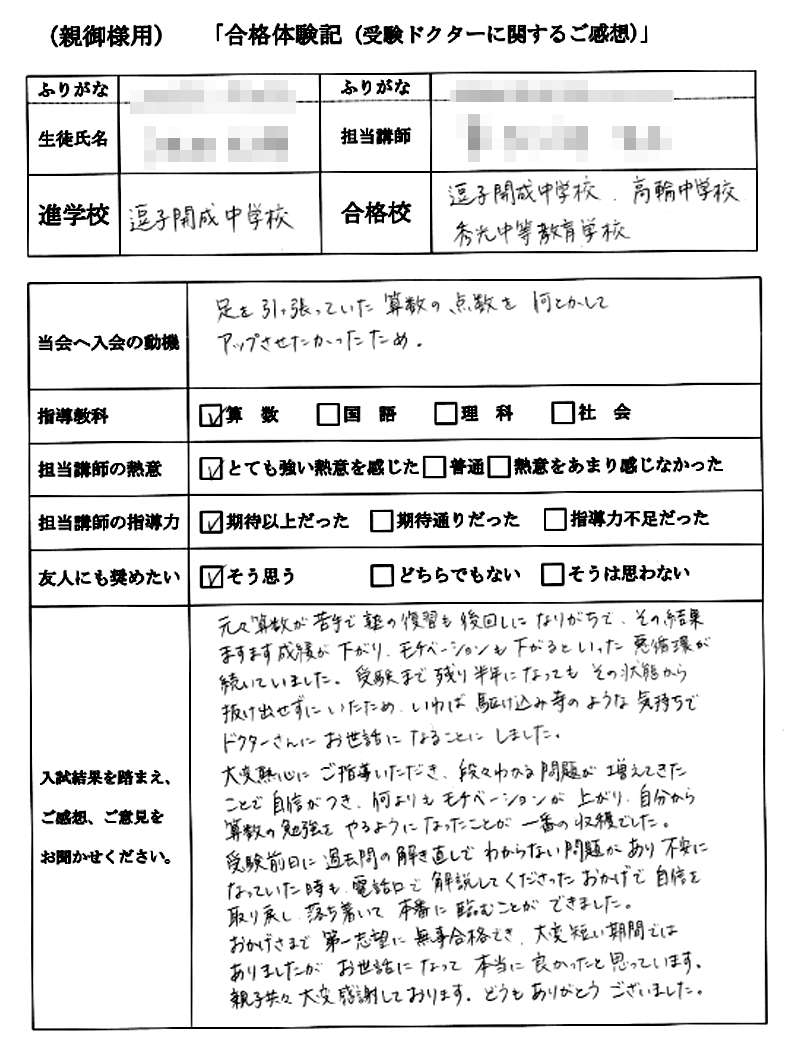 （親御様用）　「合格体験記（受験ドクターに関するご感想）」
ふりがな　ふりがな
生徒氏名　担当講師
進学校　逗子開成中学校　合格校　逗子開成中学校、高輪中学校
秀光中等教育学校
当会へ入会の動機　足を引っ張っていた算数の点数を何とかして
アップさせたかったため。
指導教科　☑算　数　□国　語　□理　科　□社　会
担当講師の熱意　☑とても強い熱意を感じた□普通□熱意をあまり感じなかった
担当講師の指導力　☑期待以上だった　□期待通りだった　□指導力不足だった
友人にも奨めたい　☑そう思う　□どちらでもない　□そうは思わない
入試結果を踏まえ、
ご感想、ご意見を
お聞かせください。
元々算数が苦手で塾の復習も後回しになりがちで、その結果
ますます成績が下がり、モチベーションも下がるといった悪循環が
続いていました。受験まで残り半年になってもその状態から
抜け出せずにいたため、いわば駆け込み寺のような気持ちで
ドクターさんにお世話になることにしました。
大変熱心にご指導いただき、段々わかる問題が増えてきた
ことで自信がつき、何よりもモチベーションが上がり、自分から
算数の勉強をやるようになったことが一番の収穫でした。
受験前日に過去問の解き直しでわからない問題があり不安に
なっていた時も、電話口で解説してくださったおかげで自信を
取り戻し、落ち着いて本番に臨むことができました。
おかげさまで第一志望に無事合格でき、大変短い期間では
ありましたがお世話になって本当に良かったと思っています。
親子共々大変感謝しております。どうもありがとうございました。